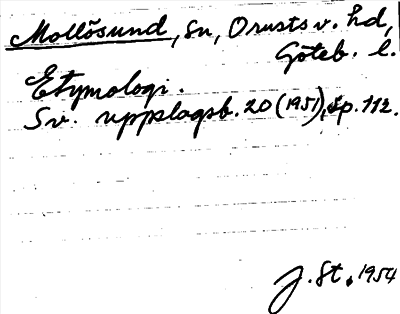 Mollösund, sn, Orusts v. hd,
Göteb. l.
Etymologi.
Sv. uppslagsb. 20 (1951), sp. 112.
J. St. 1954